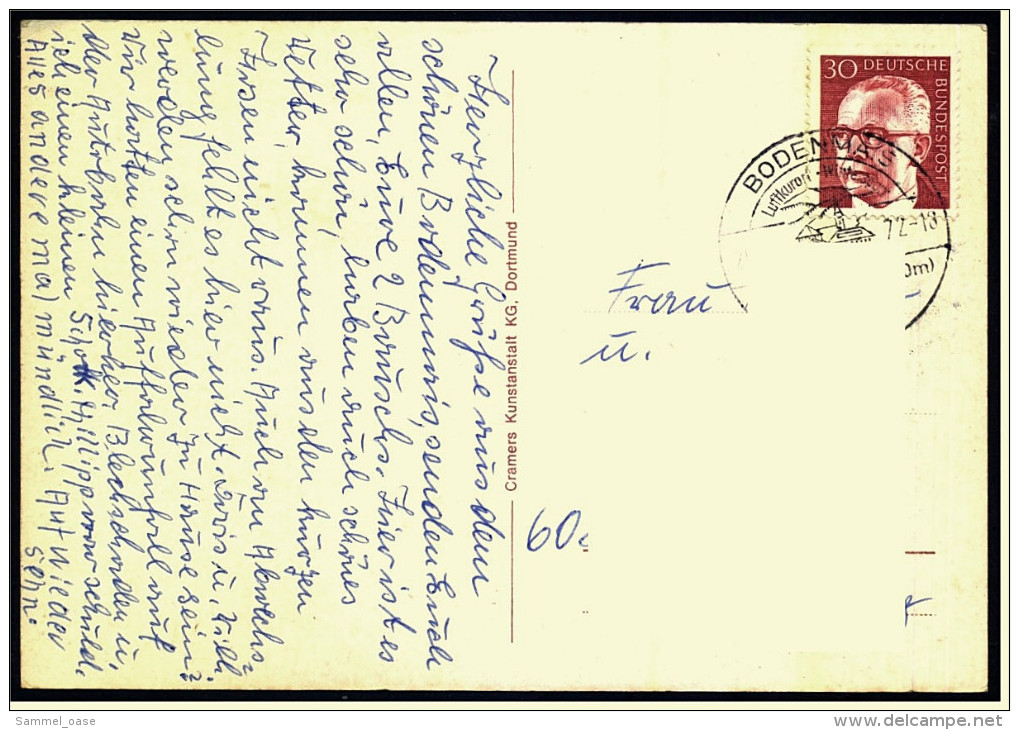 Herzliche Grüße aus dem
schönen Bodenmais, senden Euch
allen, Eure 2 Bauschs. Hier ist es
sehr schön, haben auch schönes
Wetter, kommen aus den kurzen
Hosen nicht raus. Auch an Abwechs=
lung fehlt es hier nicht. Doris u. Willi
werden schon wieder zu Hause sein?
Wir hatten einen Auffahrunfall auf
der Autobahn hierher, Blechschaden u.
ich einen kleinen Schock. war schuld.
Alles andere mal mündlich. Auf Wieder
sehn.
Cramers Kunstanstalt KG, Dortmund
30 DEUTSCHE
BUNDESPOST
BODENMAIS
Luftkurort
72-18
0m)
Frau
u.
60
Sammel_oase
www.delcampe.net